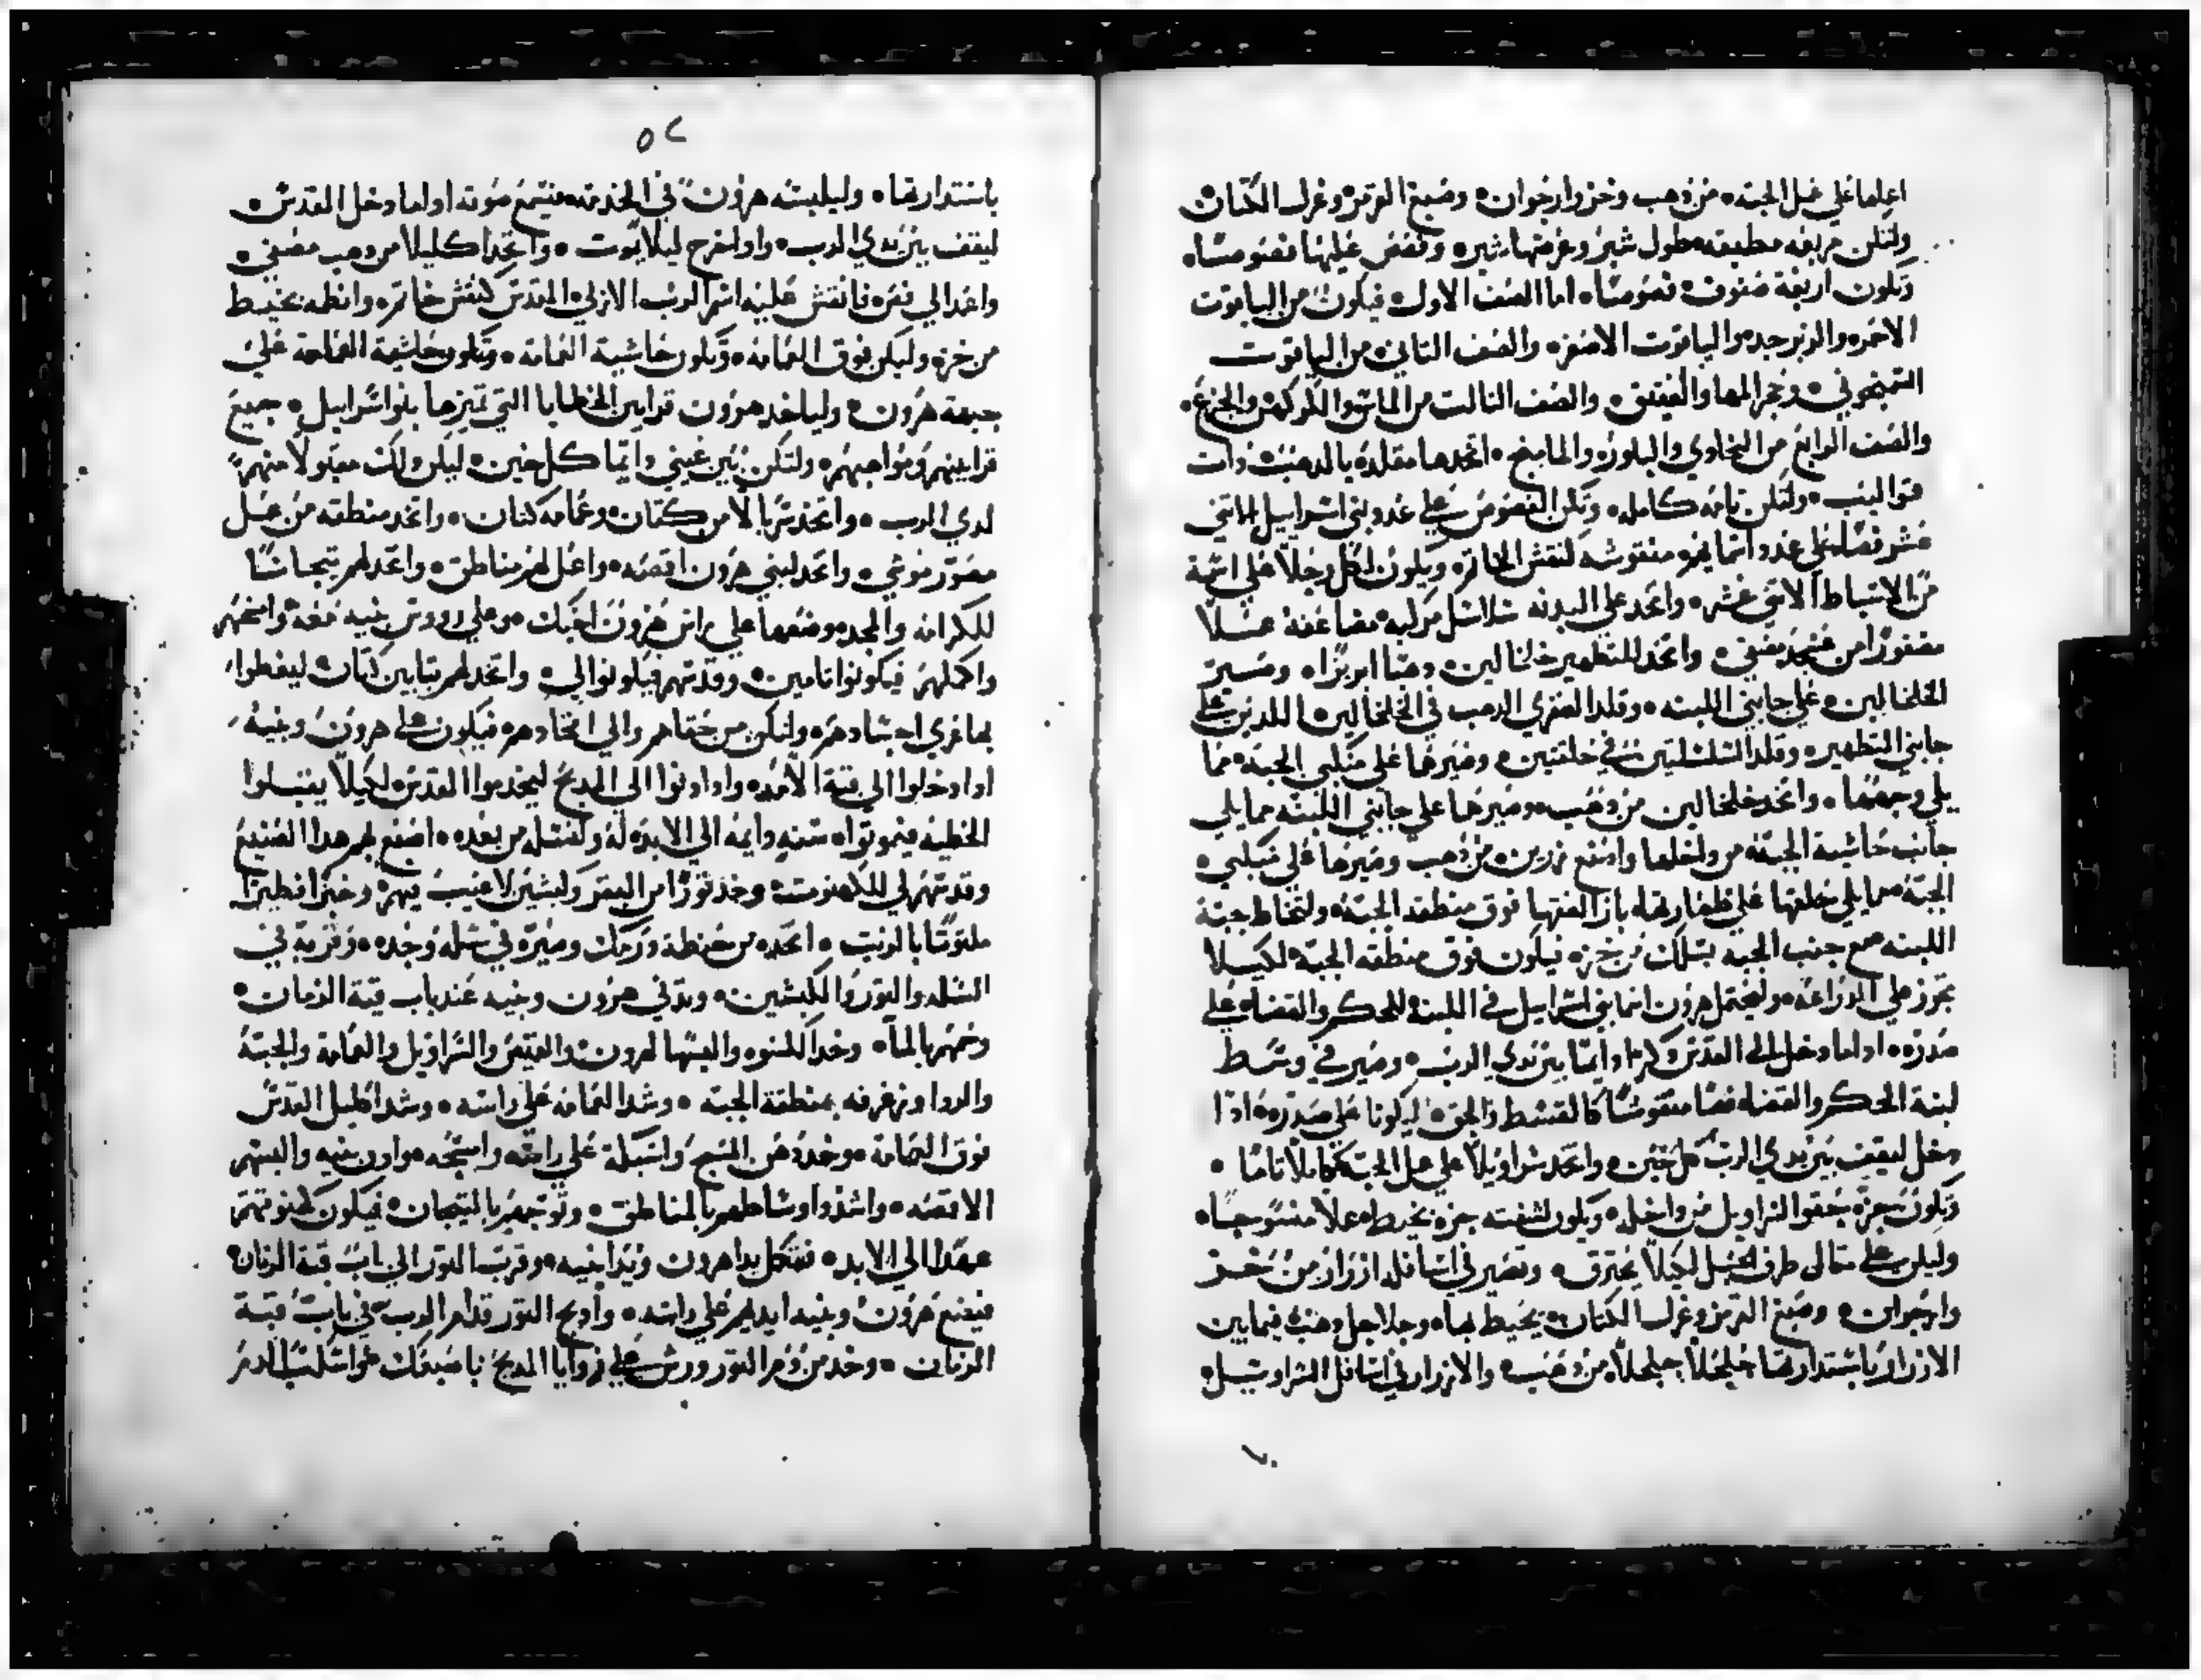 اعلها على عمل الجبه من ذهب وخز وارجوان وصبغ القرمز وغزل الكتان
ولتكن مربعه مطبقه طول شبر وعرضها شبر وتفصص عليها فصوصا
وتكون اربعة صفوف فصوصا اما الصف الاول فيكون من الياقوت
الاحمر والزبرجد والياقوت الاصفر والصف التاني من الياقوت
وحجر المها والعقيق والصف التالت من الماس والجزع
والصف الرابع من والبلور اتخدها مقلده بالدهب دات
قواليب ولتكن تامه كامله وتكن الفصوص على عدد بني اسراييل الاتني
عشر فصا على عدد اسمايهم منقوشه كنقش الخاتم ويكون لكل رجلا على اسمه
من الاسباط الاتني عشر واتخد على البدنه سلاسل مركبه مضاعفه عملا
مضفورا من عسجد مصفى واتخد للتطهير خلخالين دهبا ابريزا وصير
الخلخالين على جانبي اللبنه وقلد الضفري الدهب في الخلخالين اللدين على
جانبي التطهير وقلد السلسلتين في حلقتين وصيرهما على منكبي الجبه مما
يلي وجهها واتخد خلخالين من دهب وصيرهما على جانبي اللبنه مما يلي
جانب حاشية الجبه من داخلها واصنع زرين من دهب وصيرهما على منكبي
الجبه مما يلي خلفها على بازا لفقها فوق منطقة الجبه ولتخاط جبة
اللبنه مع جنب الجبه بسلك من خز فيكون فوق منطقه الجبه لكيلا
تحرز على الدراعه وليحتمل هرون اسما بني اسراييل في اللبنه للحكم والقضا على
صدره ادا ما دخل الى القدس دكرا دايما بين يدي الرب وصير في وسط
لبنة الحكم والقضا فصا منقوشا كالقسط والحق ليكونا على صدره ادا
دخل ليقف بين يدي الرب كل حين واتخد سراويلا على عمل الجبه كاملا تاما
وتكون حجزة حقوا السراويل من داخله وتكون لشفته حجزه بخيط عملا منسوجا
وليكن على متال طرف لكيلا يخترق وتصير في اسافله ازرار من خز
وارجوان وصبغ القرمز وغزل الكتان يحيط بها وجلاجل دهب فيما بين
الازرار باستدارتها جلجلا جلجلا من دهب والازرار في اسافل السراويل
٥٢
باستدارتها وليلبسه هرون في الخدمه فيسمع صوته ادا ما دخل القدس
ليقف بين يدي الرب وادا خرج ليلا يموت واتخد اكليلا من دهب مصفى
واعمد الي فانقش عليه اسم الرب الازلي المقدس كنقش خاتم وانظمه بخيط
من خز وليكن فوق العمامه وتكون حاشية العمامه وتكون حاشية العمامه على
جبهة هرون ولياخد هرون قرابين الخطايا التي تميزها بنوا اسراييل جميع
قرابينهم ومواهبهم ولتكن بين عيني دايما كل حين ليكن دلك مقبولا منهم
لدي الرب واتخد سربالا من كتان وعمامه كتان واتخد منطقه من عمل
مصور موشى واتخد لبني هرون اقمصه واعمل لهم مناطق واتخد لهم تيجانا
للكرامه والمجد وضعها على راس هرون اخيك وعلي رووس بنيه معه وامسحهم
واكملهم فيكونوا تامين وقدسهم فيكونوا لي واتخد لهم تبابين كتان ليغطوا
بها عري اجسادهم ولتكن من حقاهم والي افخادهم فيكون على هرون وبنيه
ادا دخلوا الي قبة الامد وادا دنوا الي المدبح ليخدموا القدس لكيلا يقبلوا
الخطيه فيموتوا سنه دايمه الي الابد له ولنسله من بعده اصنع بهم هدا الصنيع
وقدسهم لي للكهنوت وخد تورا من البقر وكبشين لا عيب فيهم وخبزا فطيرا
ملتوتا بالزيت اتخده من حنطة درمك وصيره في سله وحده وقربه في
السله والتور والكبشين وتدني هرون وبنيه عند باب قبة الزمان
وحمهم بالماء وخد الكسوه والبسها لهرون والقميص والسراويل والعمامة والجبه
والردا وزخرفه بمنطقة الجبه وشد العمامه على راسه وشد اكليل القدس
فوق العمامة وخد دهن المسح واسكبه على راسه وامسحه وادن بنيه والبسهم
الاقمصه واشدد اوساطهم بالمناطق وتوجهم بالتيجان فيكون كهنوتهم
عهدا الي الابد فتكمل يدا هرون ويدا بنيه وقرب التور الي باب قبة الزمان
فيضع هرون وبنيه ايديهم على راسه وادبح التور قدام الرب في باب قبة
الزمان وخد من دم التور ورش على زوايا المدبح باصبعك واسكب الدم